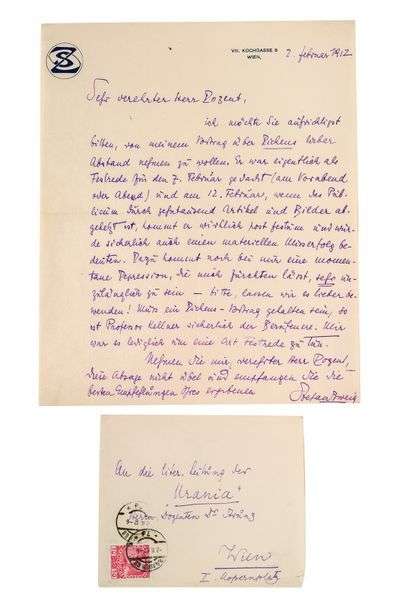 SZ
VIII. KOCHGASSE 8
WIEN,
2. Februar 1912
Sehr verehrter Herr Dozent,
ich möchte Sie aufrichtigst
bitten, von meinem Vortrag über Dickens lieber
Abstand nehmen zu wollen. Er war eigentlich als
Festrede für den 7. Februar gedacht (am Vorabend
oder Abend) und am 12. Februar, wenn das Pub-
licum durch zehntausend Artikel und Bilder ab-
gehetzt ist, kommt er wirklich post festum und wür-
de sicherlich auch einen materiellen Misserfolg be-
deuten. Dazu kommt noch bei mir eine momen-
tane Depression, die mich fürchten lässt, sehr un-
zulänglich zu sein – bitte, lassen wir es lieber be-
wenden! Muss ein Dickens-Vortrag gehalten sein, so
ist Professor Kellner sicherlich der Berufenere. Mir
war es lediglich um eine Art Festrede zu tun.
Nehmen Sie mir, verehrter Herr Dozent,
diese Absage nicht übel und empfangen Sie die
besten Empfehlungen Ihres ergebenen
Stefan Zweig
An die liter. Leitung der
"Urania"
Herrn Dozenten Dr
Wien
I.